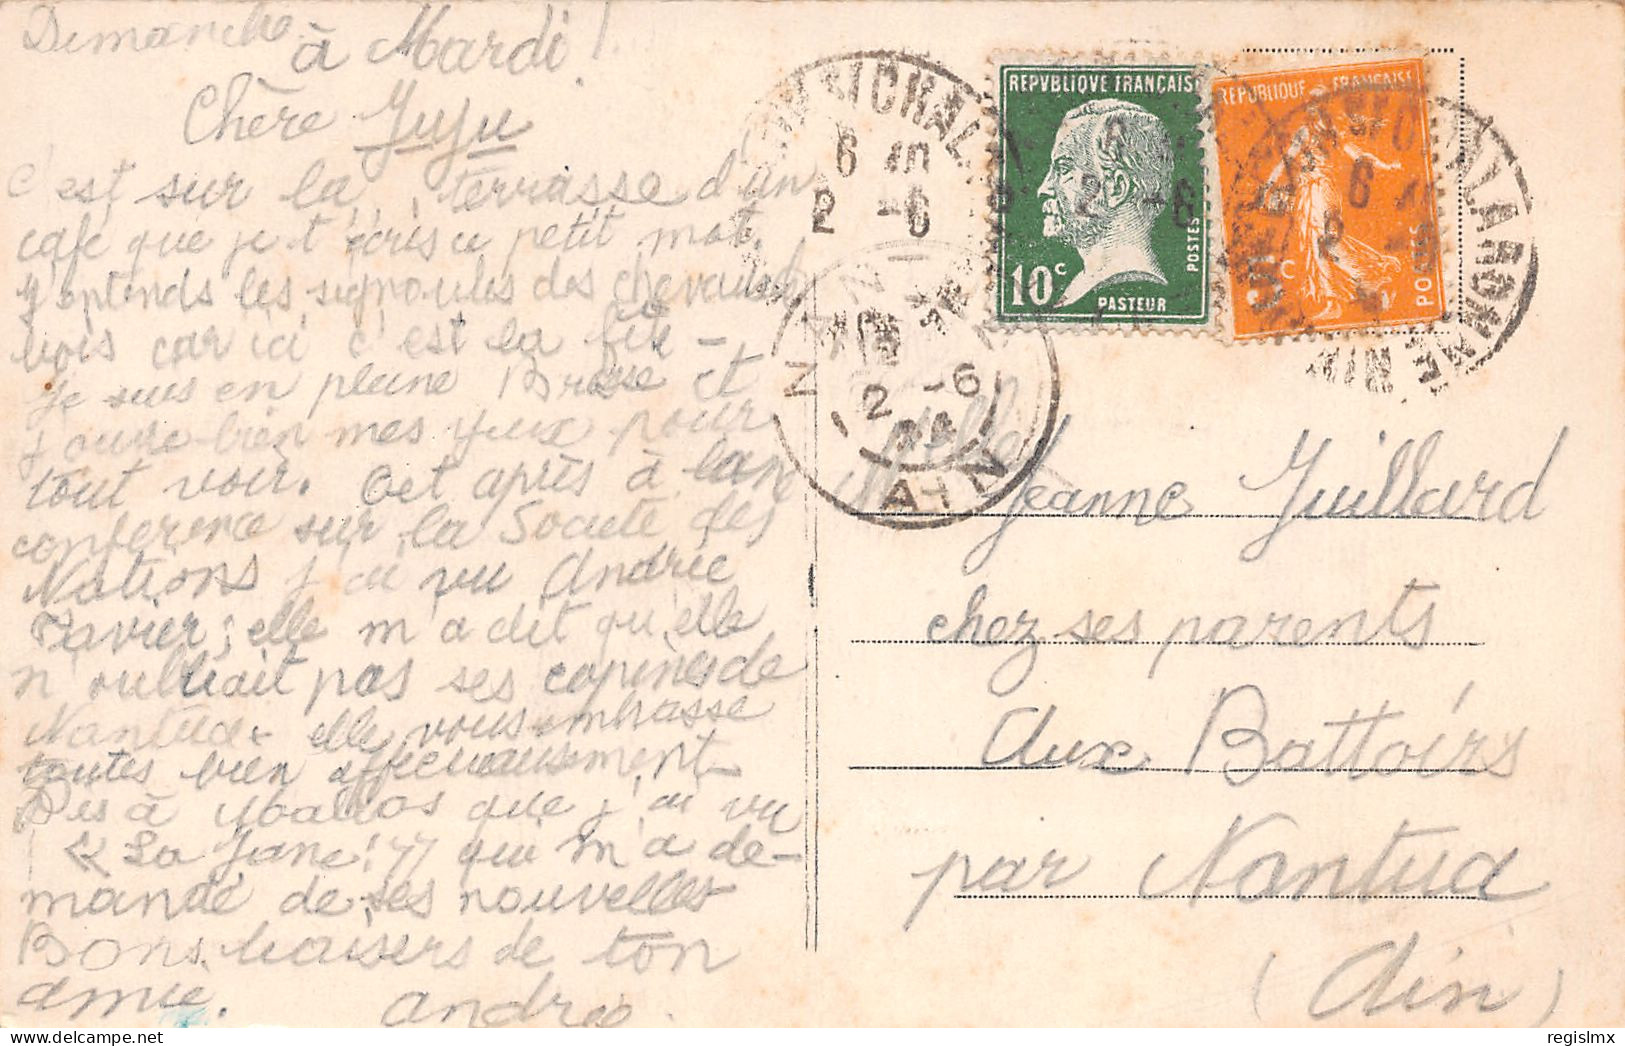 Dimanche
à Mardi!
Chère Juju
C'est sur la terrasse d'un
café que je t'écris ce petit mot.
J'entends les des chevaux
bois car ici c'est la fête
Je suis en pleine Bresse et
j'ouvre bien mes yeux pour
tout voir. Cet après à la
conférence sur la Société des
Nations j'ai vu Andrée
Tavier; elle m'a dit qu'elle
n'oubliait pas ses copines de
Nantua. elle vous embrasse
toutes bien affectueusement
Dis à que j'ai vu
« La Jane! » qui m'a de-
mandé de ses nouvelles
Bons baisers de ton
amie.
Andrée.
REPVBLIQVE FRANÇAISE
10c
PASTEUR
POSTES
REPUBLIQUE FRANÇAISE
POSTES
6
2 -6
NANTUA
2 -6
AIN
Melle
Jeanne Juillard
chez ses parents
Aux Battoirs
par Nantua
(Ain)
regislmx